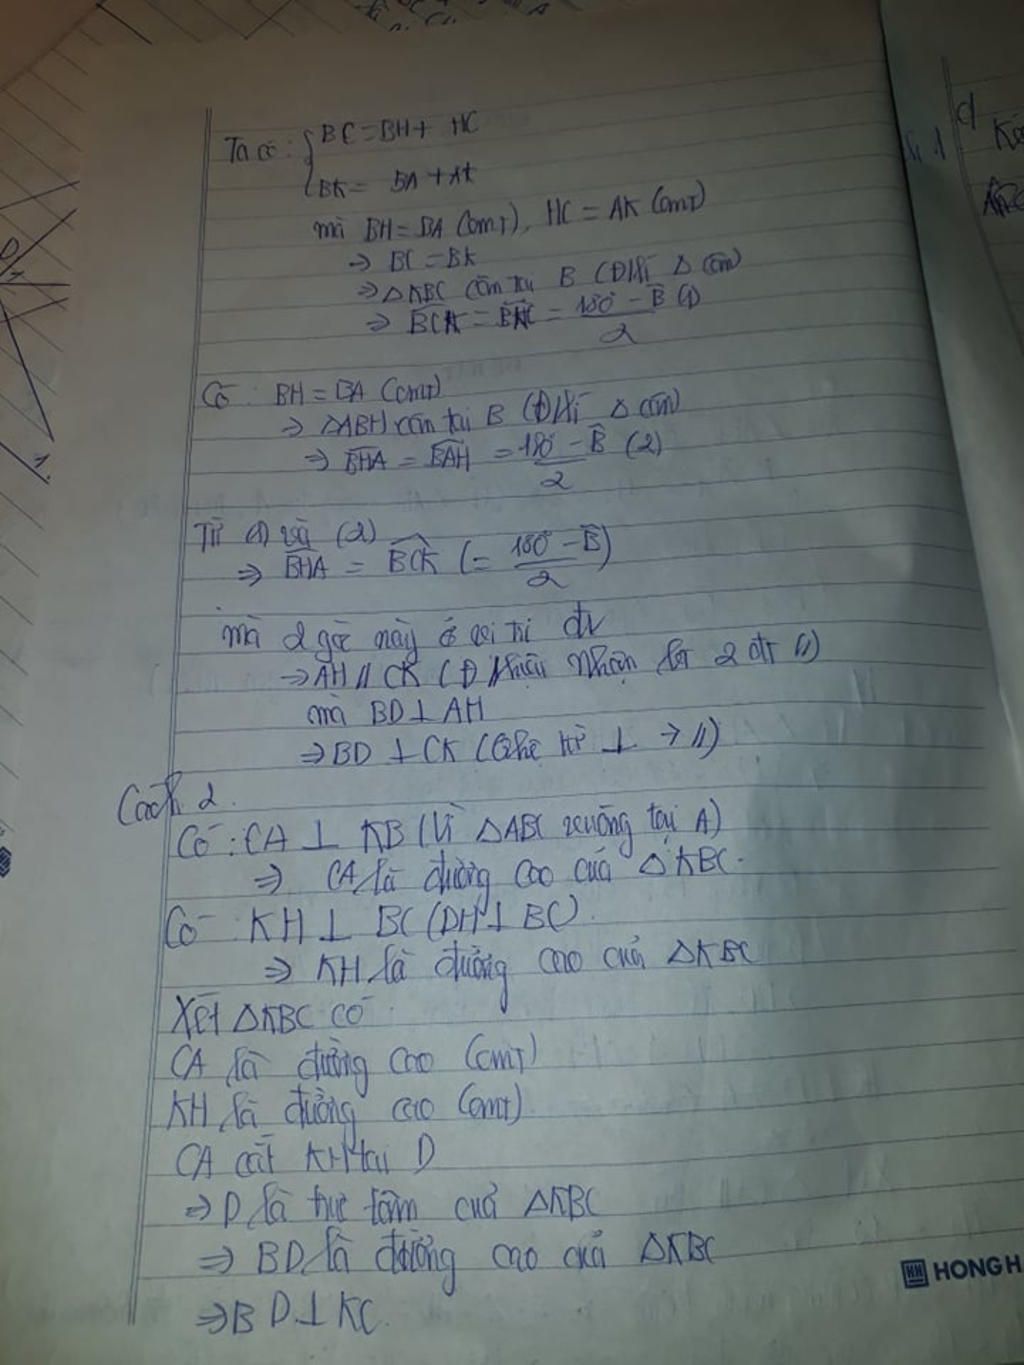 Ta có: { BC = BH + HC
BK = BA + AK
mà BH = BA (cmt), HC = AK (cmt)
⇒ BC = BK
⇒ △KBC cân tại B (ĐN △ cân)
⇒ BCK = BKC = 180° - B (1)
2
Có: BH = BA (cmt)
⇒ △ABH cân tại B (ĐN △ cân)
⇒ BHA = BAH = 180° - B (2)
2
Từ (1) và (2)
⇒ BHA = BCK (= 180° - B)
2
mà 2 góc này ở vị trí đv
⇒ AH // CK (Dhiệu nhận bt 2 đt //)
mà BD ⊥ AH
⇒ BD ⊥ CK (Qhệ từ ⊥ → //)
Cách 2.
Có: CA ⊥ KB (Vì △ABC vuông tại A)
⇒ CA là đường cao của △KBC.
Có KH ⊥ BC (DH ⊥ BC).
⇒ KH là đường cao của △KBC
Xét △KBC có
CA là đường cao (cmt)
KH là đường cao (cmt)
CA cắt KH tại D
⇒ D là trực tâm của △KBC
⇒ BD là đường cao của △KBC
⇒ BD ⊥ KC.
HONG H